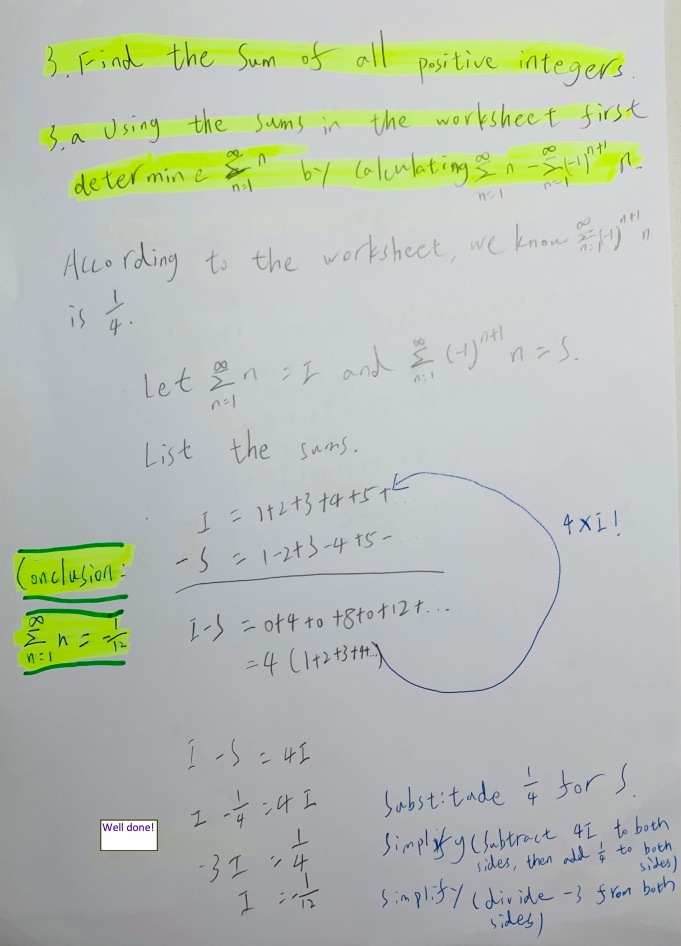 3. Find the sum of all positive integers.
3.a Using the sums in the worksheet first
determine ∞Σn=1 n by calculating ∞Σn=1 n - ∞Σn=1 (-1)^n+1 n.
According to the worksheet, we know ∞Σn=1 (-1)^n+1 n
is 1/4.
Let ∞Σn=1 n = I and ∞Σn=1 (-1)^n+1 n = S.
List the sums.
I = 1+2+3+4+5+...
4×I!
-S = 1-2+3-4+5-...
Conclusion:
∞Σn=1 n = -1/12
I-S = 0+4+0+8+0+12+...
= 4 (1+2+3+4+...)
I - S = 4I
I - 1/4 = 4I
Substitude 1/4 for S.
Well done!
-3I = 1/4
Simplify (Subtract 4I to both
sides, then add 1/4 to both
sides)
I = -1/12
Simplify (divide -3 from both
sides)